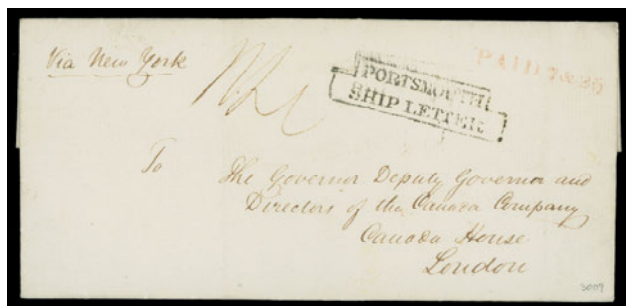 Via New York
PAID
PORTSMOUTH
SHIP LETTER
To
The Governor Deputy Governor and
Directors of the Canada Company
Canada House
London
3009